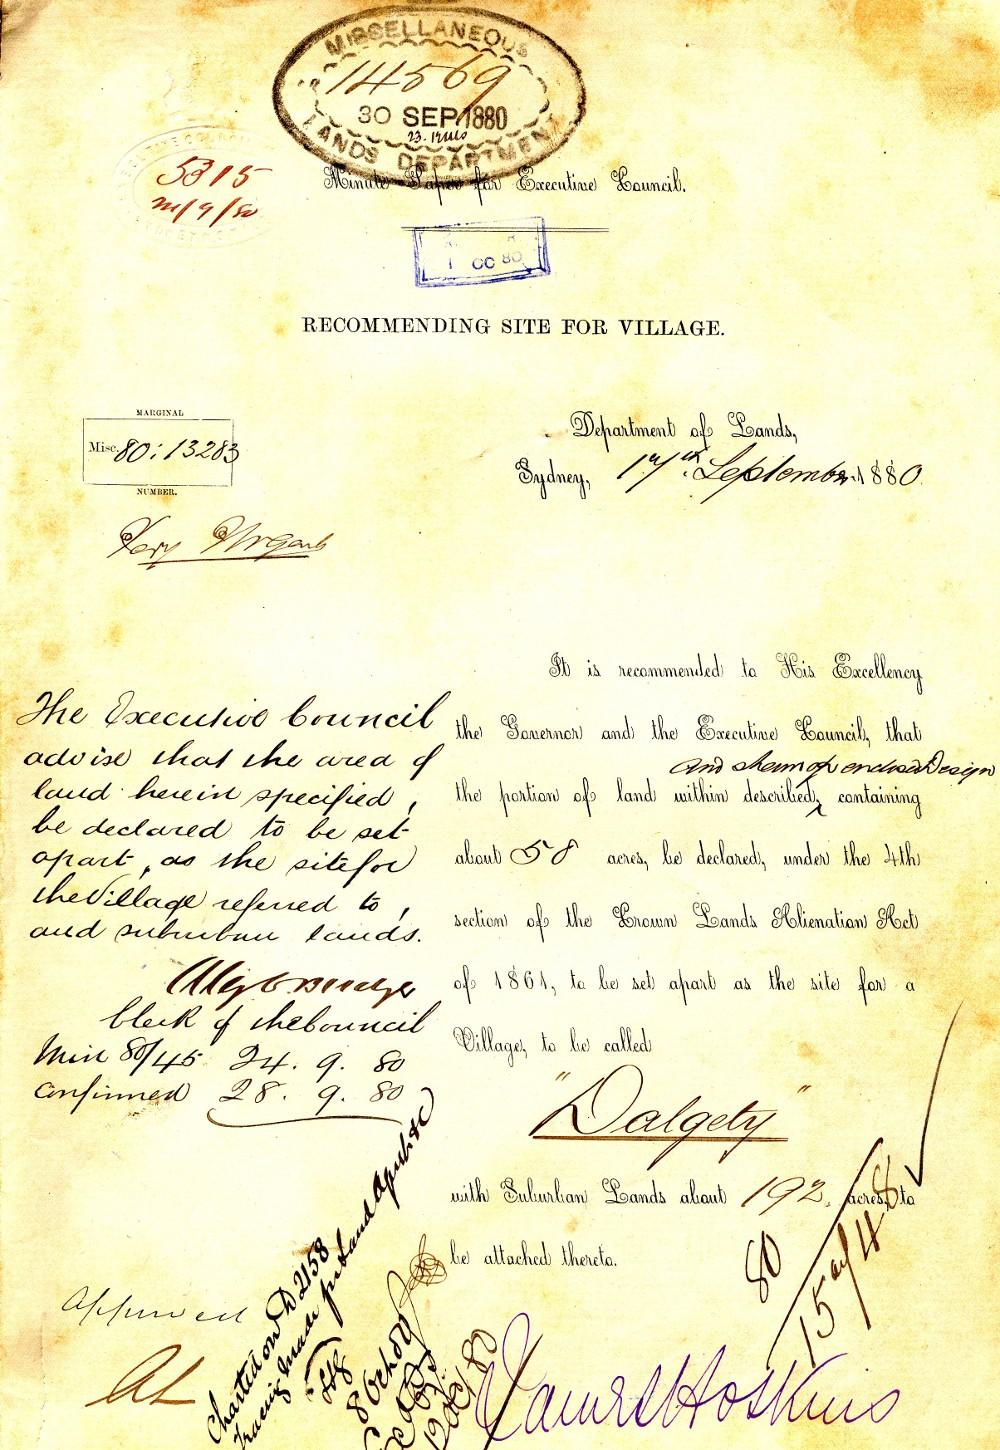 MISCELLANEOUS
14569
30 SEP 1880
LANDS DEPARTMENT
5315
/9/80
Minute Paper for Executive Council.
RECOMMENDING SITE FOR VILLAGE.
MARGINAL
Misc. 80:13283
NUMBER.
Department of Lands,
Sydney, 17th September 1880.
Very Urgent
It is recommended to His Excellency
the Governor and the Executive Council, that
and shewn on enclosed Design
the portion of land within described, containing
about 58 acres, be declared, under the 4th
section of the Crown Lands Alienation Act
of 1861, to be set apart as the site for a
Village, to be called
"Dalgety"
with Suburban Lands about 192 acres, to
be attached thereto.
The Executive Council
advise that the area of
land herein specified,
be declared to be set
apart, as the site for
the Village referred to,
and suburban lands.
Clerk of the Council
Min 80/45 24. 9. 80
Confirmed 28. 9. 80
Approved
AL
Charted on D 2158
Tracing made for Land Agent &c
80
James Hoskins